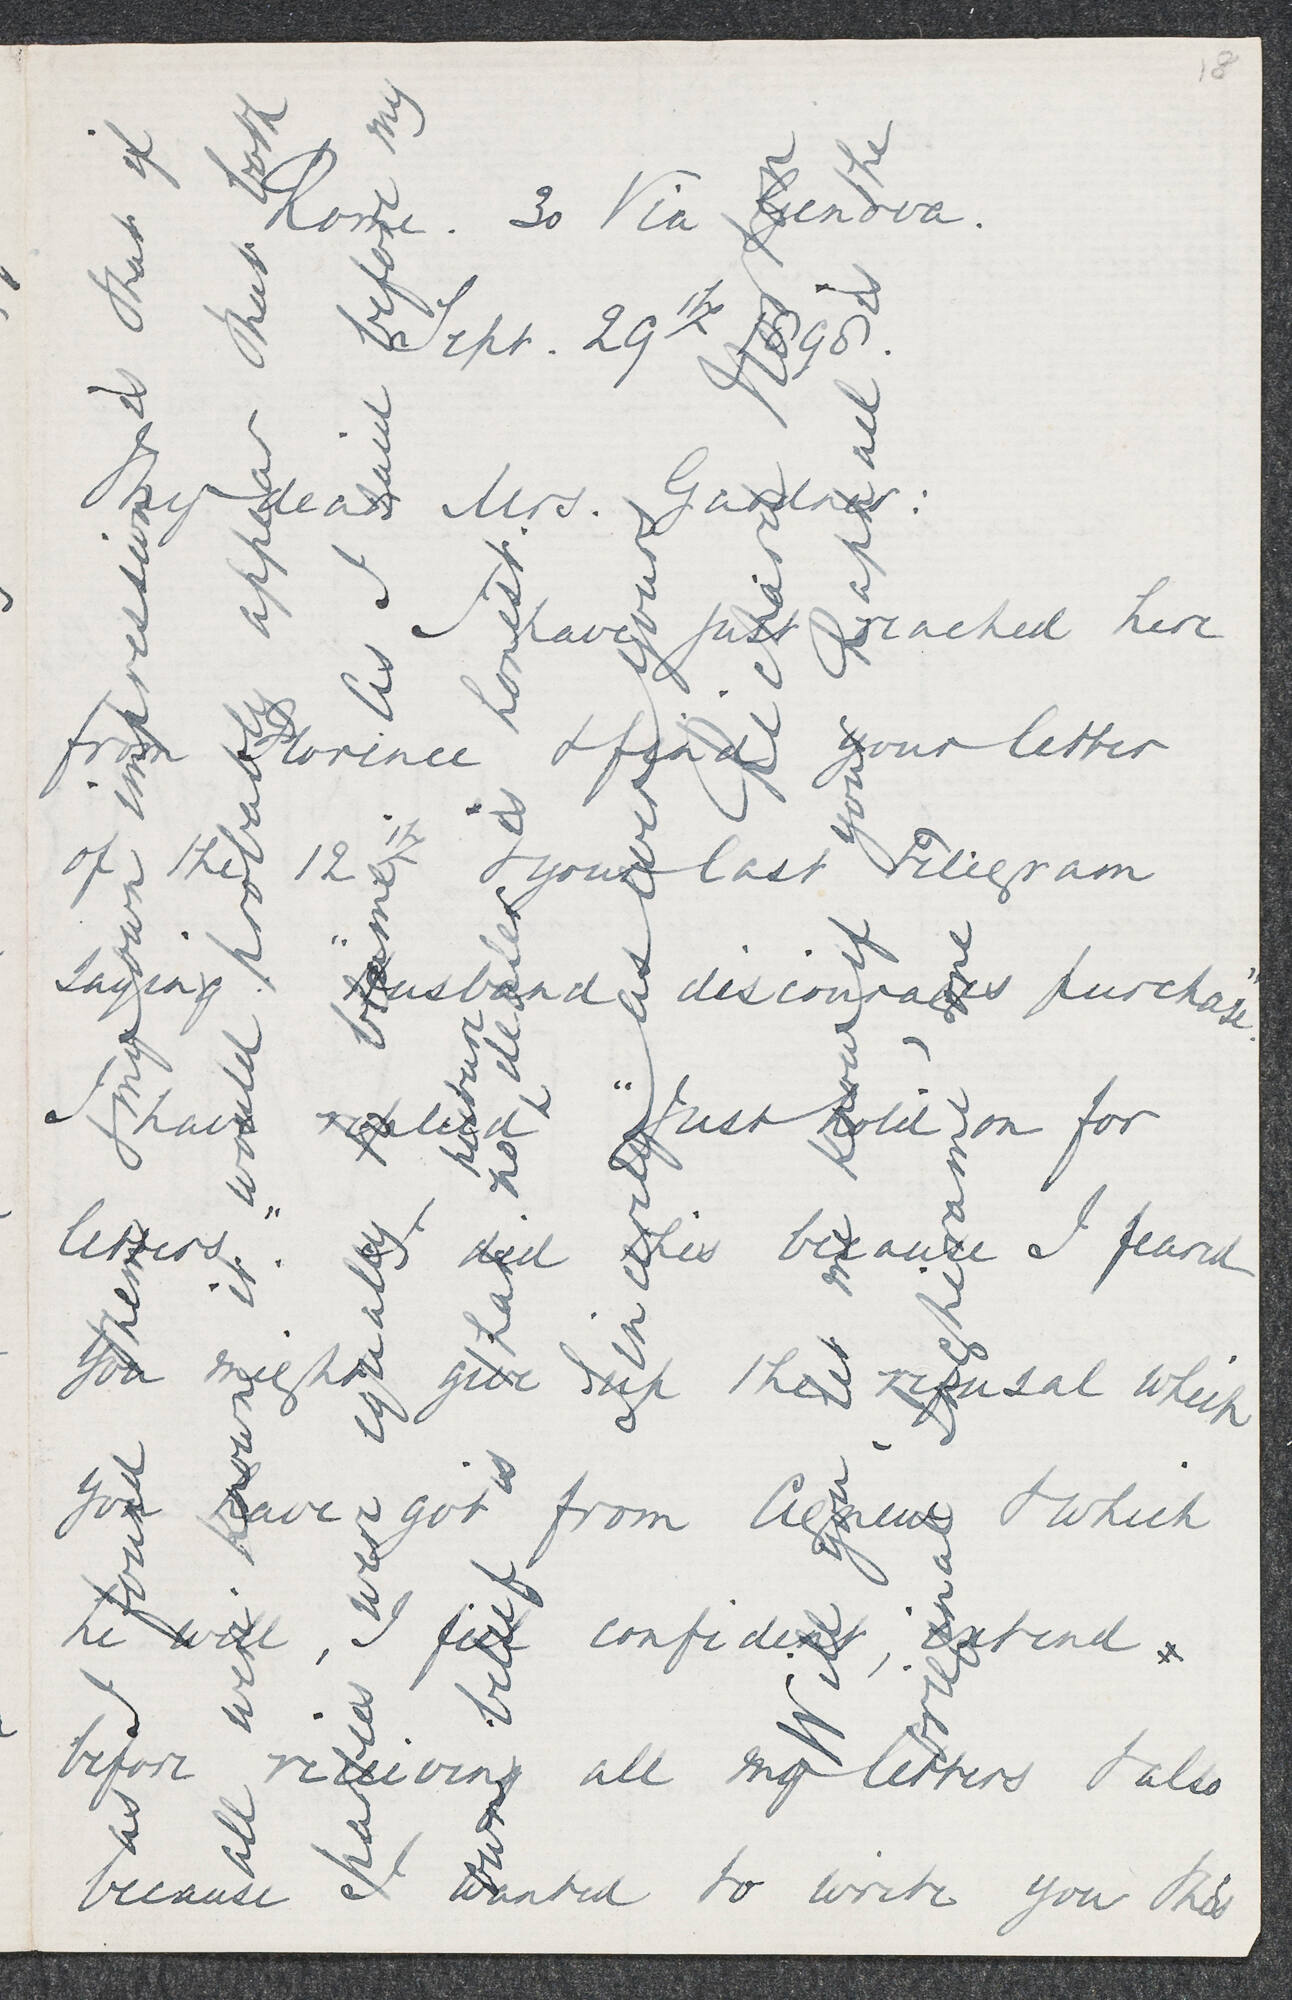 18
Rome. 30 Via Genova.
Sept. 29th 1898.
My dear Mrs. Gardner:
I have just reached here
from Florence & find your letter
of the 12th & your last Telegram
saying "Husband discourages purchase".
I have replied "Just hold on for
letters." I did this because I feared
you might give up the refusal which
you have got from Agnew & which
he will, I feel confident, extend
before receiving all my letters & also
because I wanted to write you this
as I found them & my own impression is that if
all were known it would probably appear that both
parties were equally to blame. As I said before my
own belief is that
not dealer is honest.
Sincerely as ever yours
Richard Norton
Will you let me know if your Raphael is the
original Inghirami, one